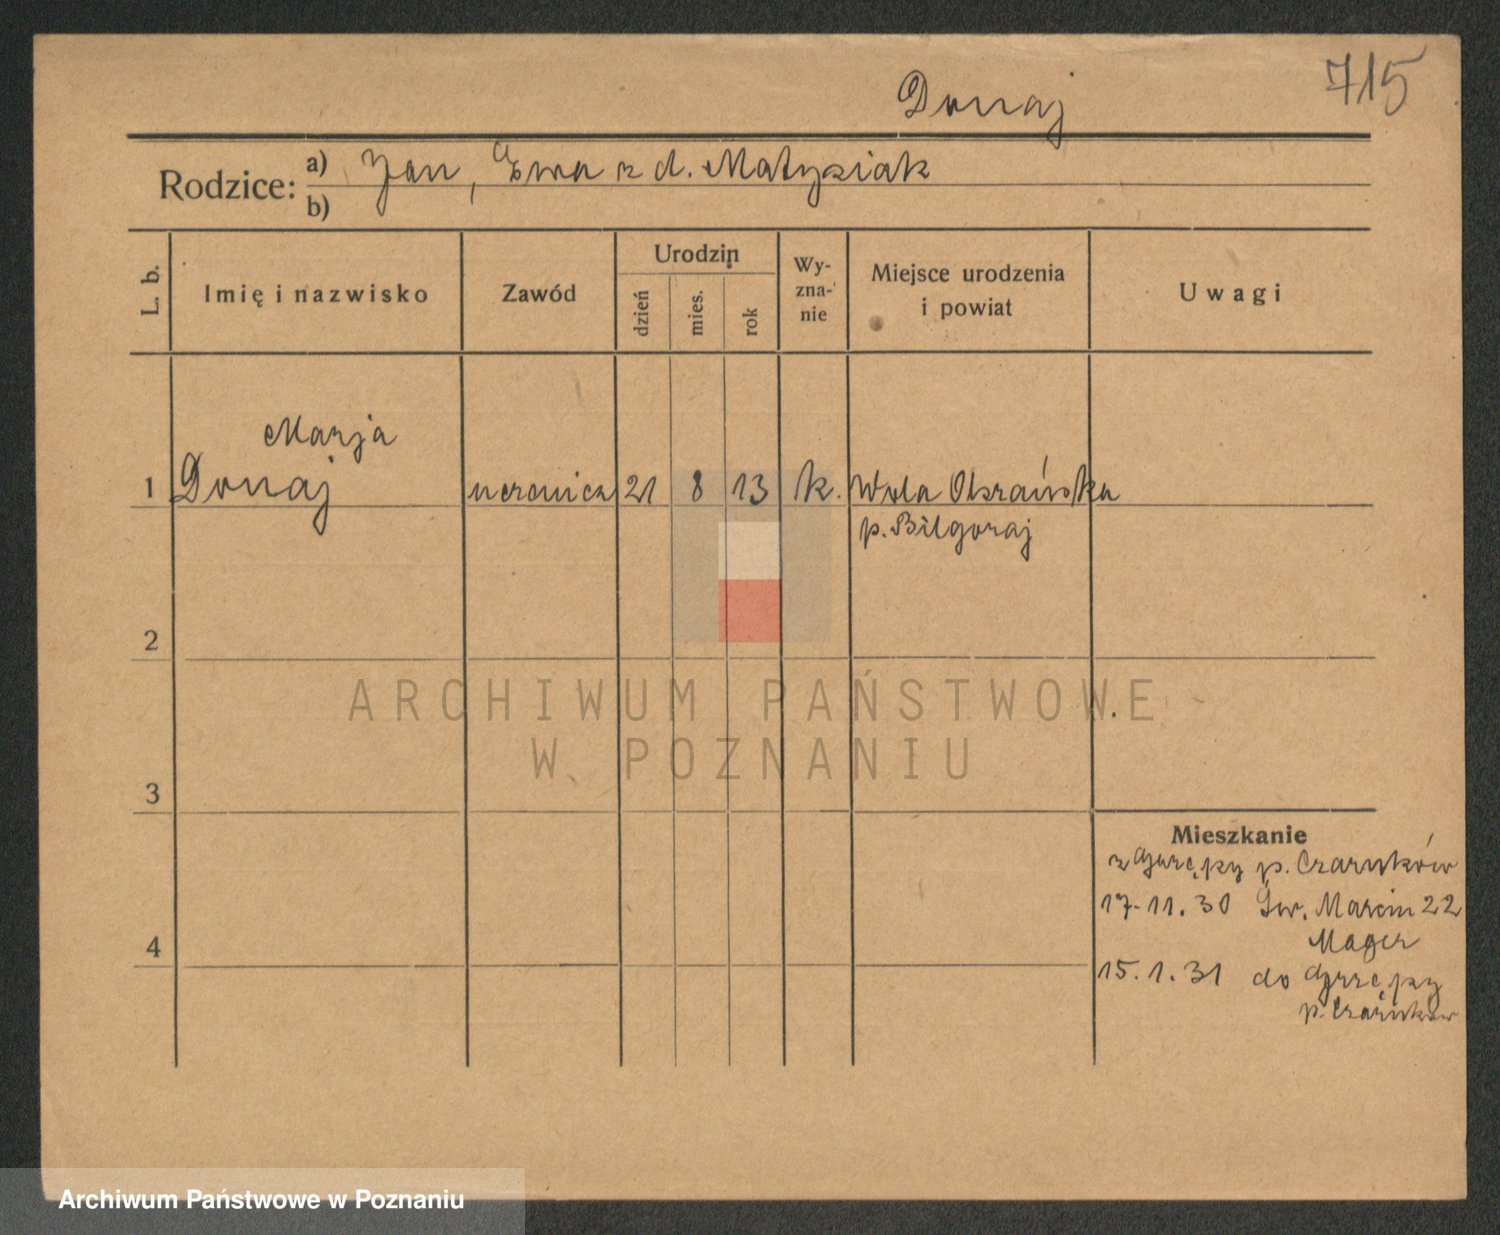 715
Donaj
Rodzice: a) Jan, Ewa z d. Matysiak
b)
L. b.
Imię i nazwisko
Zawód
Urodzin
dzień
mies.
rok
Wy-
zna-
nie
Miejsce urodzenia
i powiat
Uwagi
Marja
1 Donaj uczenica 21 8 13 k. Wola
p. Bilgoraj
2
ARCHIWUM PAŃSTWOWE
W POZNANIU
3
Mieszkanie
z p. Czarnków
17.11.30 Św. Marcin 22
Mager
4
15.1.31 do
p. Czarnków
Archiwum Państwowe w Poznaniu